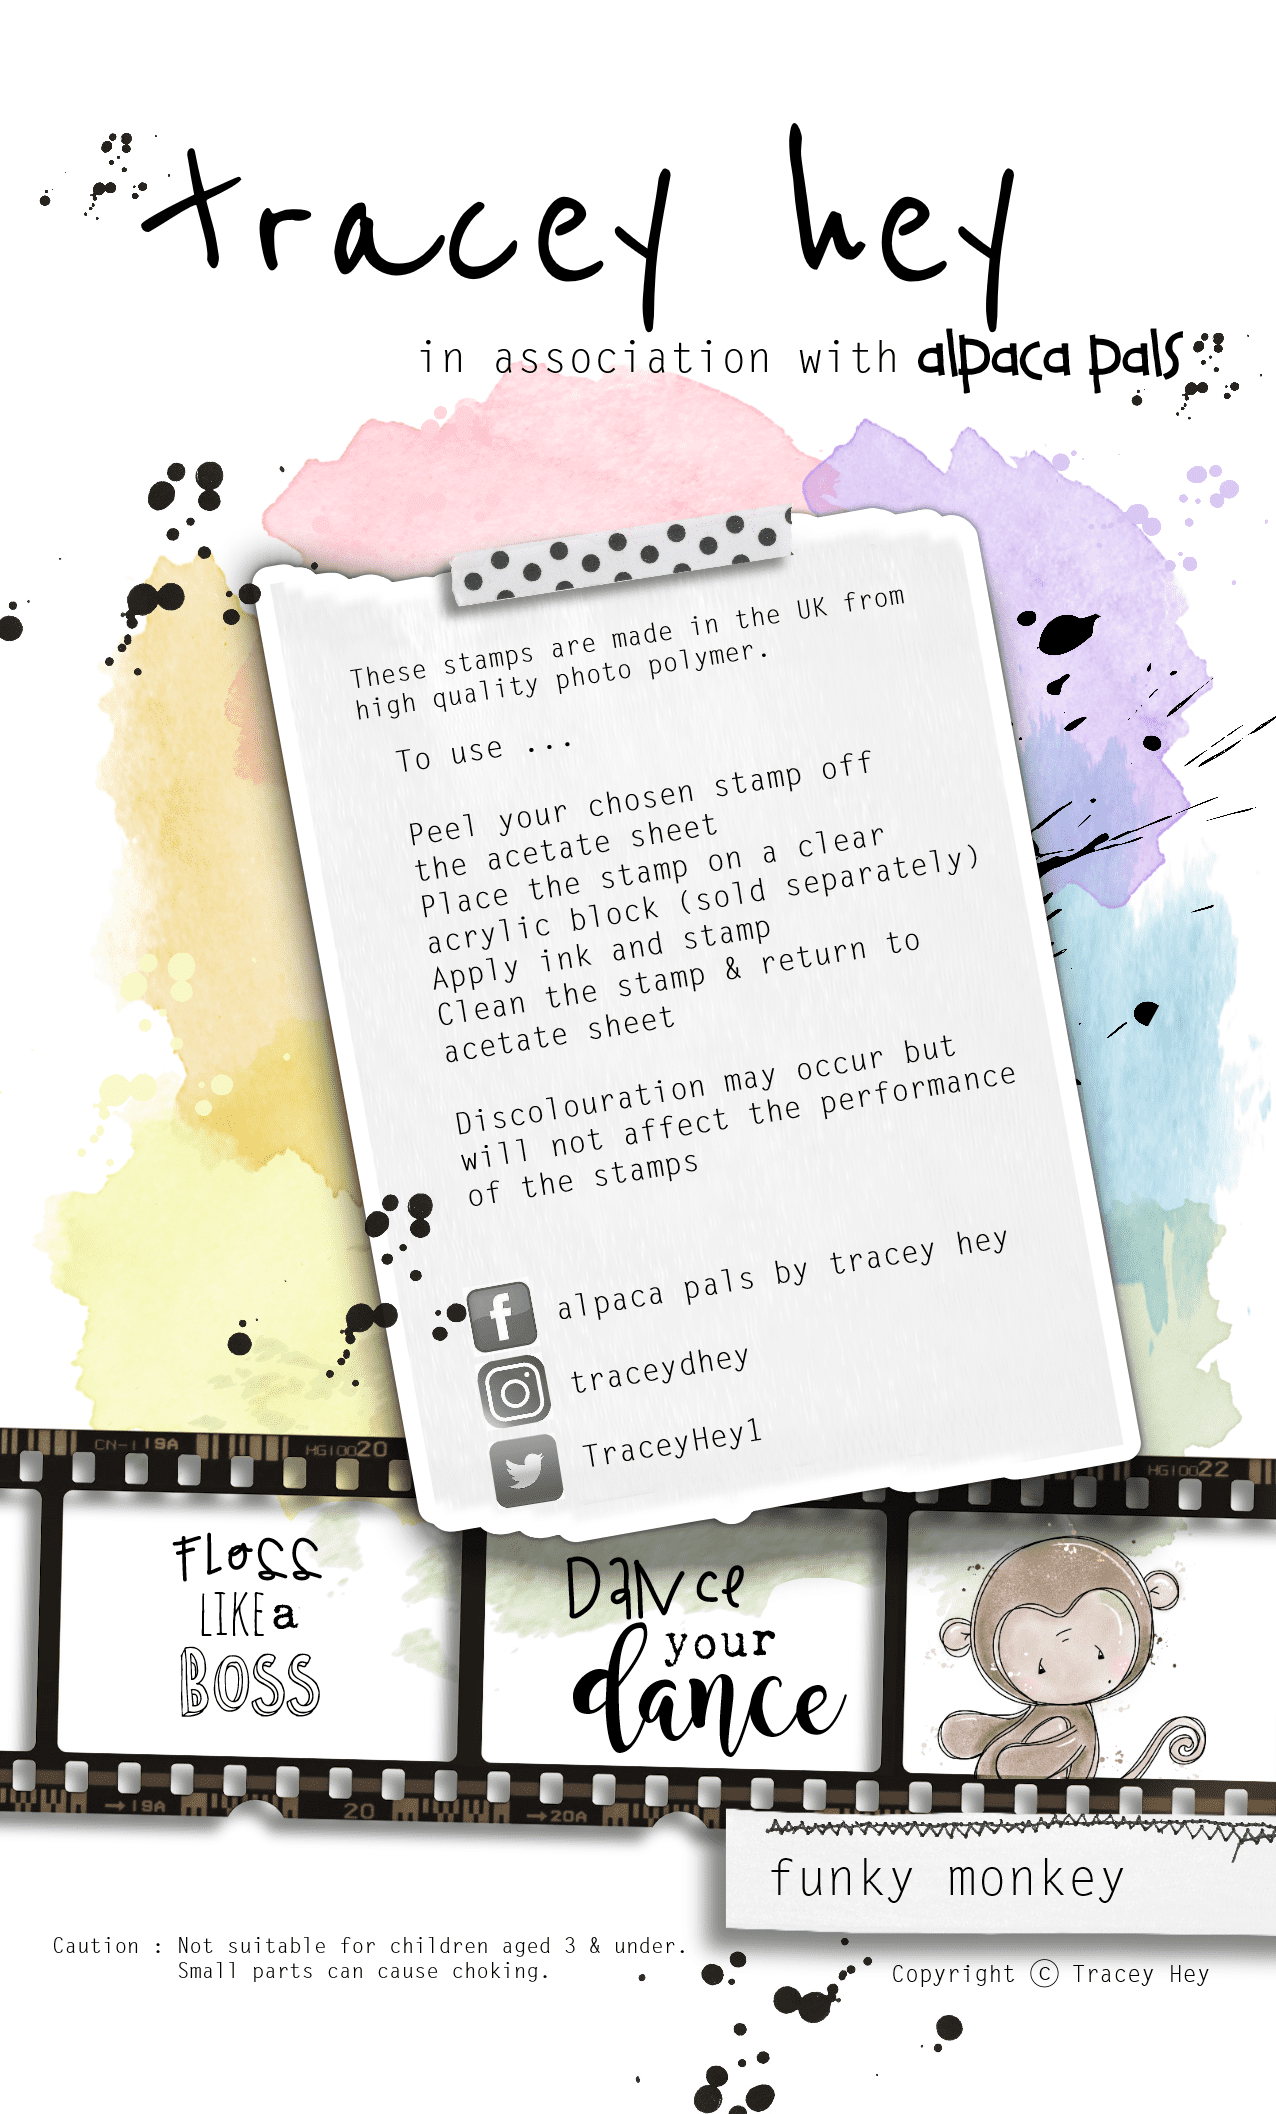 tracey hey
in association with alpaca pals
These stamps are made in the UK from
high quality photo polymer.
To use ...
Peel your chosen stamp off
the acetate sheet
Place the stamp on a clear
acrylic block (sold separately)
Apply ink and stamp
Clean the stamp & return to
acetate sheet
Discolouration may occur but
will not affect the performance
of the stamps
alpaca pals by tracey hey
traceydhey
TraceyHey1
CN-1 19A
HG10020
HG10022
FLOSS
LIKE a
BOSS
DaNce
your
dance
→19A
20
→20A
funky monkey
Caution : Not suitable for children aged 3 & under.
Small parts can cause choking.
Copyright © Tracey Hey